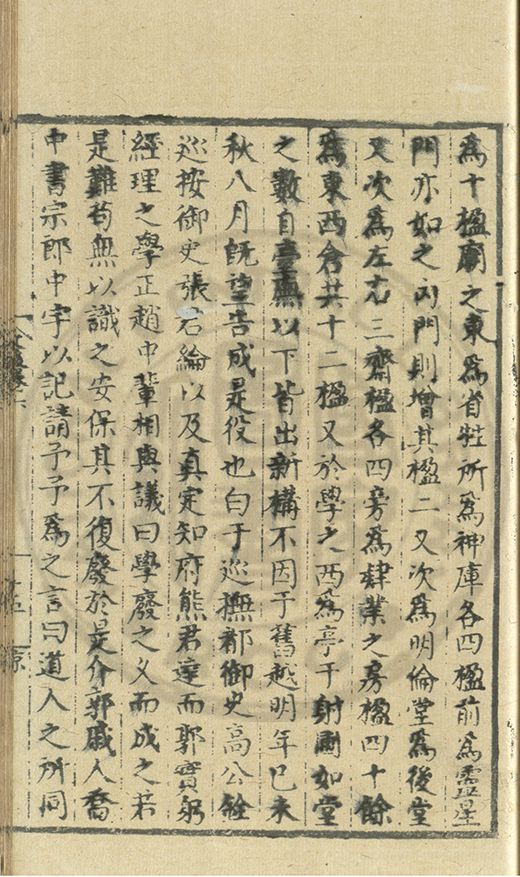 為十楹廟之東為省牲所為神庫各四楹前為靈星
門亦如之內門則增其楹二又次為明倫堂為後堂
又次為左右三齋楹各四旁為肄業之房楹四十餘
為東西倉共十二楹又於學之西為亭于射圃如堂
之數自臺無以下皆出新構不因于舊越明年己未
秋八月旣望告成是役也白于巡撫都御史高公銓
巡按御史張君綸以及真定知府熊君達而郭實躬
經理之學正趙中輩相與議曰學廢之久而成之若
是難苟無以識之安保其不復廢於是介郭戚人喬
中書宗郎中宇以記請予予為之言曰道人之所同